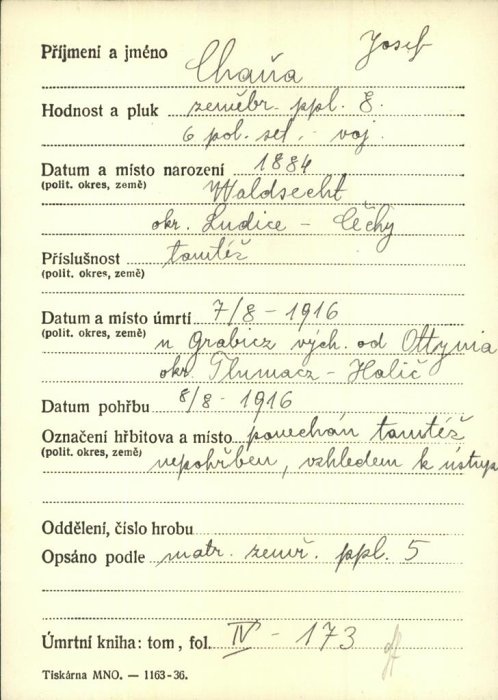 Příjmení a jméno Chaňa Josef
Hodnost a pluk zeměbr. ppl. 8.
6 pol. set. - voj.
Datum a místo narození 1884
(polit. okres, země) Waldsecht
okr. Ludice - Čechy
Příslušnost tamtéž
(polit. okres, země)
Datum a místo úmrtí 7/8 - 1916
(polit. okres, země) u Grabicz vých. od Ottynia
okr. Tlumacz - Halič
Datum pohřbu 8/8 - 1916
Označení hřbitova a místo ponechán tamtéž
(polit. okres, země) nepohřben, vzhledem k ústupu
Oddělení, číslo hrobu
Opsáno podle matr. zemř. ppl. 5
Úmrtní kniha: tom, fol. IV - 173
Tiskárna MNO. — 1163-36.